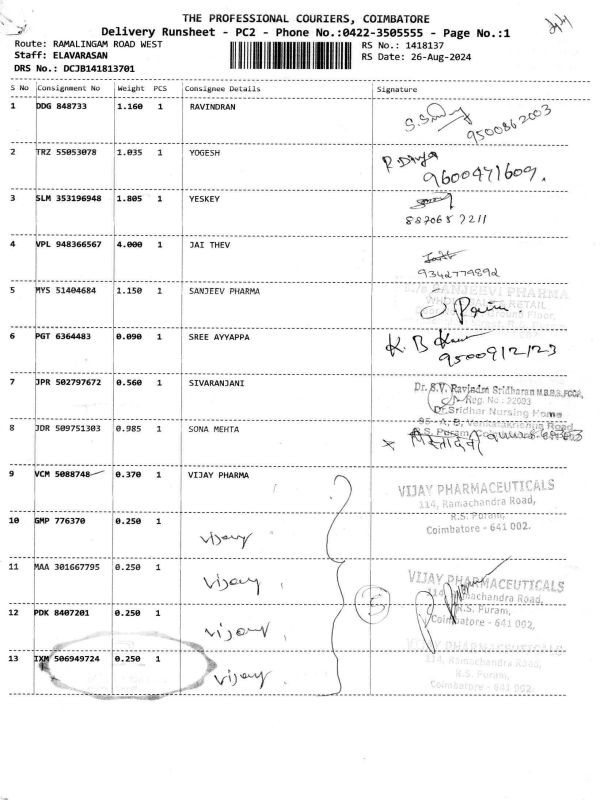 THE PROFESSIONAL COURIERS, COIMBATORE
Delivery Runsheet - PC2 - Phone No.:0422-3505555 - Page No.:1
Route: RAMALINGAM ROAD WEST RS No.: 1418137
Staff: ELAVARASAN RS Date: 26-Aug-2024
DRS No.: DCJB141813701
S No Consignment No Weight PCS Consignee Details Signature
1 DDG 848733 1.160 1 RAVINDRAN
9500862003
2 TRZ 55053078 1.035 1 YOGESH R Divya
9600471609.
3 SLM 353196948 1.805 1 YESKEY
4 VPL 948366567 4.000 1 JAI THEV
9342779892
5 MYS 51404684 1.150 1 SANJEEV PHARMA SANJEEVI PHARMA
6 PGT 6364483 0.090 1 SREE AYYAPPA K. B
9500912123
7 JPR 502797672 0.560 1 SIVARANJANI Dr. S.V. Ravindra Sridharan M.B.B.S,FCGP,
Reg. No : 22093
Dr Sridhar Nursing Home
8 JDR 509751303 0.985 1 SONA MEHTA
9 VCM 5088748 0.370 1 VIJAY PHARMA VIJAY PHARMACEUTICALS
114, Ramachandra Road,
R.S. Puram,
Coimbatore - 641 002.
10 GMP 776370 0.250 1
vijay
11 MAA 301667795 0.250 1 VIJAY PHARMACEUTICALS
vijay 114, Ramachandra Road,
5 R.S. Puram,
12 PDK 8407201 0.250 1 Coimbatore - 641 002,
vijay
VIJAY PHARMACEUTICALS
13 IXM 506949724 0.250 1 114, Ramachandra Road,
vijay R.S. Puram,
Coimbatore - 641 002.